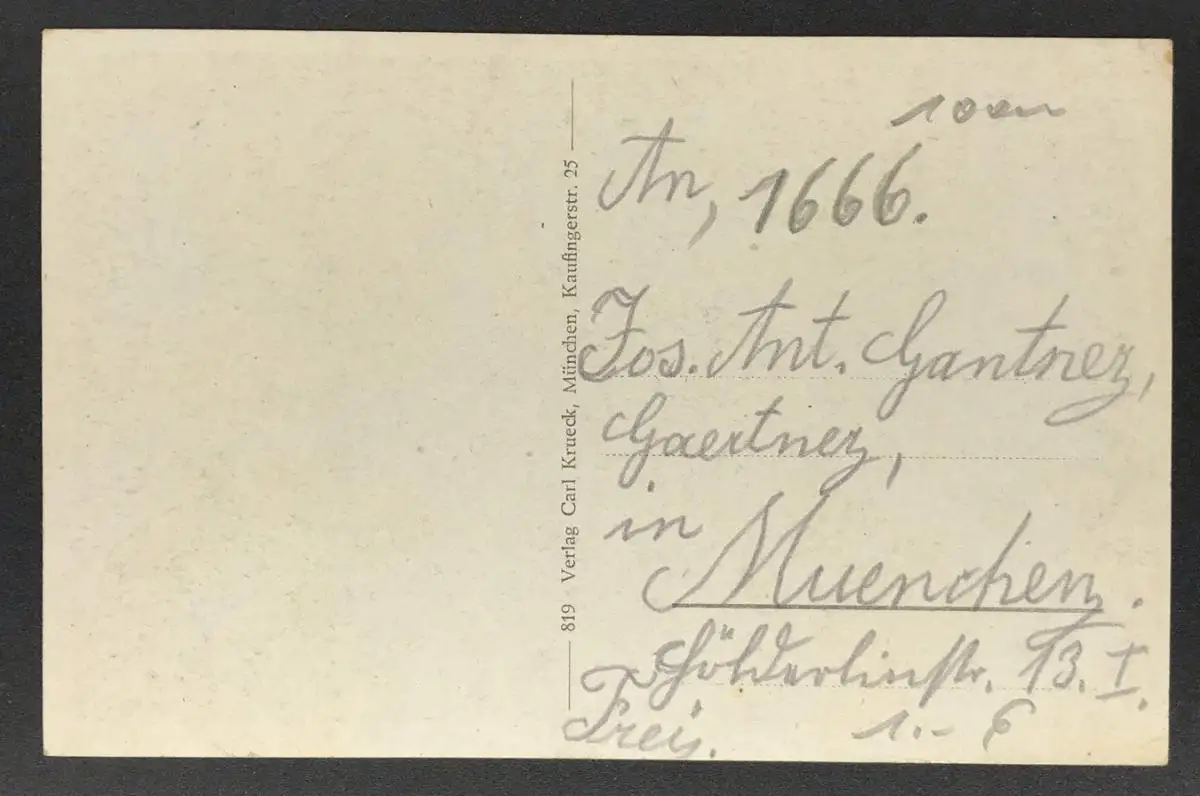 819 Verlag Carl Krueck, München, Kaufingerstr. 25
An, 1666.
Jos. Ant. Gantner,
Gaertner,
in
Muenchen.
Hölderlinstr. 13. I.
Frei.
1.-